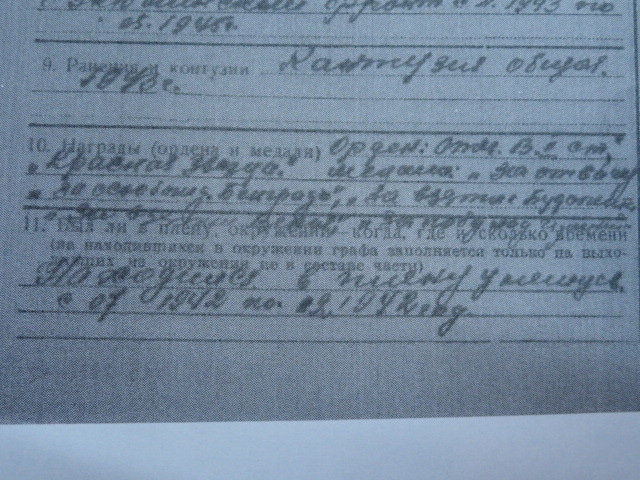 фронт с 1943 по
05. 1945г.
9. Ранения и контузии Контузия общая.
1943г.
10. Награды (ордена и медали) Орден: Отч. В. II ст,
"Красная Звезда." медали: "За отвагу
"За освобожд. Белграда", "За взятие Будапешта
"За взятие Вены"
11. Был ли в плену, окружении — когда, где и сколько времени
(на находившихся в окружении графа заполняется только на выхо-
из окружения не в составе части)
Находился в плену у немцев.
с 07 1942 по 1942 год